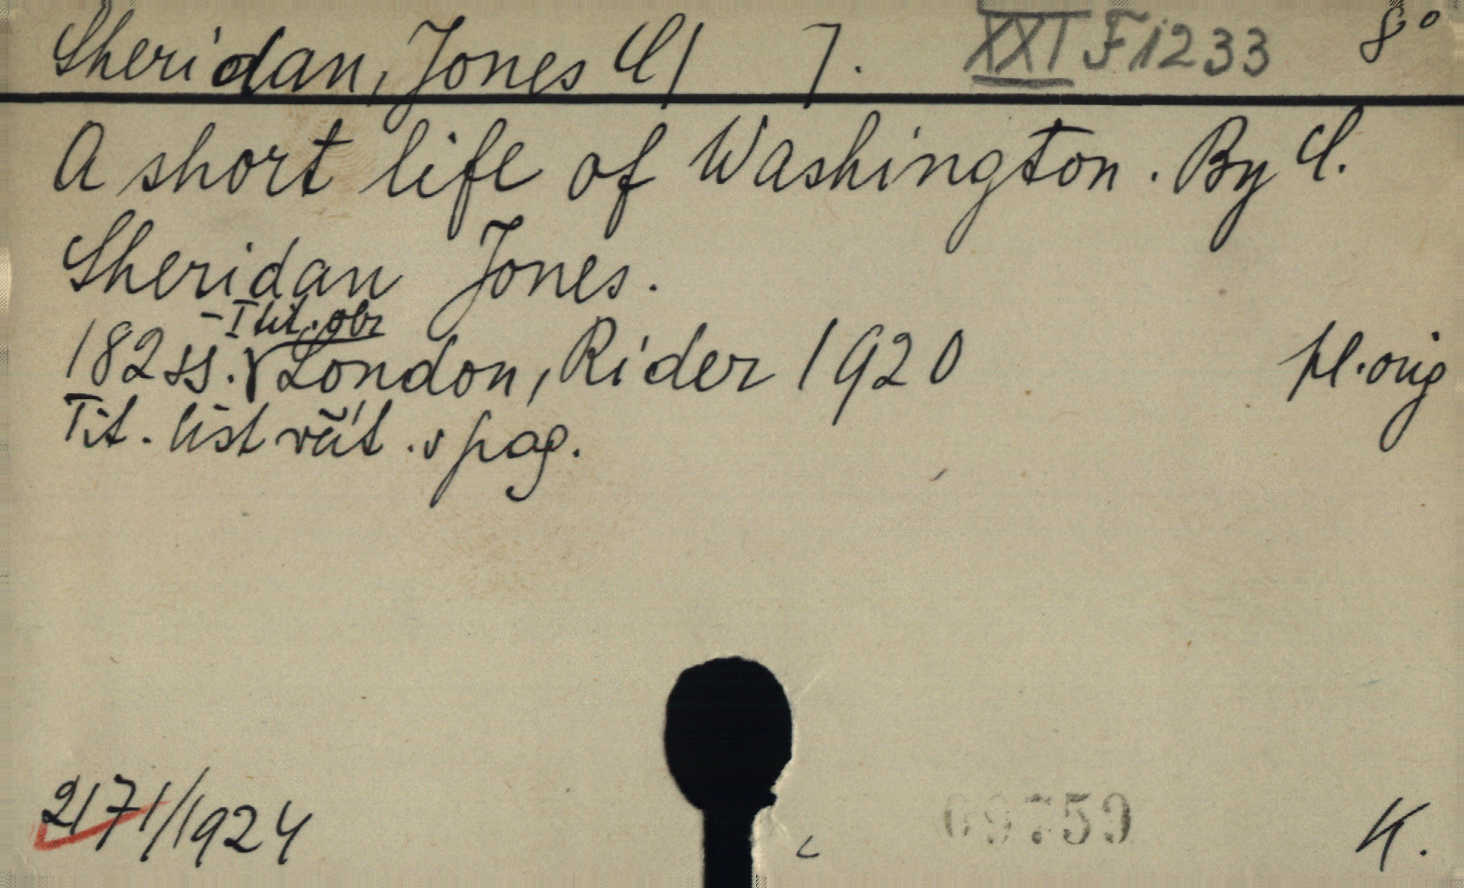 Sheridan, Jones C/ 7. XXI F 1233 8°
A short life of Washington. By C.
Sheridan Jones.
- I tit. obr
182 ss. London, Rider 1920 pl. orig
Tit. list včít. v pag.
2171/1924 09759 K.